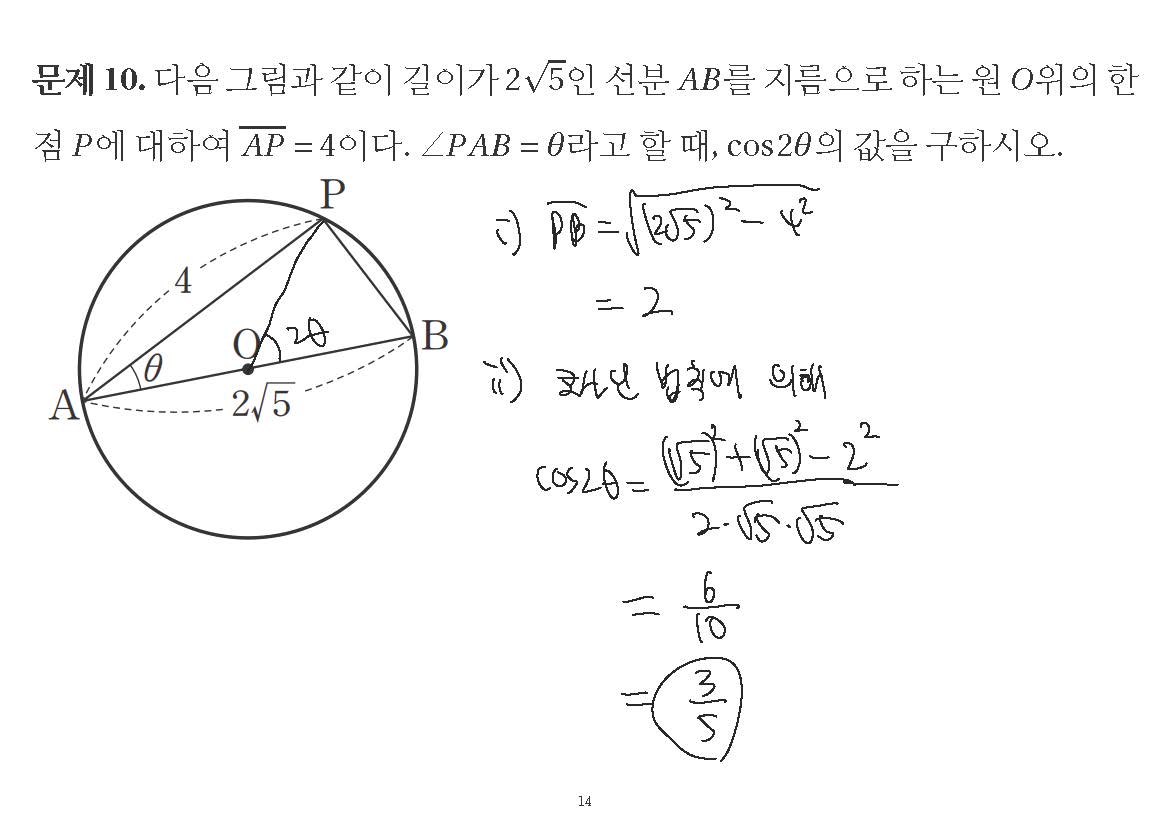 문제 10. 다음 그림과 같이 길이가 2√5인 선분 AB를 지름으로 하는 원 O위의 한
점 P에 대하여 \overline{AP} = 4이다. ∠PAB = θ라고 할 때, cos2θ의 값을 구하시오.
P
4
O
2θ
B
θ
A
2√5
i) \overline{PB} = √((2√5)² − 4²)
= 2
ii) 코사인 법칙에 의해
cos2θ = ((√5)² + (√5)² − 2²) / (2·√5·√5)
= 6/10
= 3/5
14